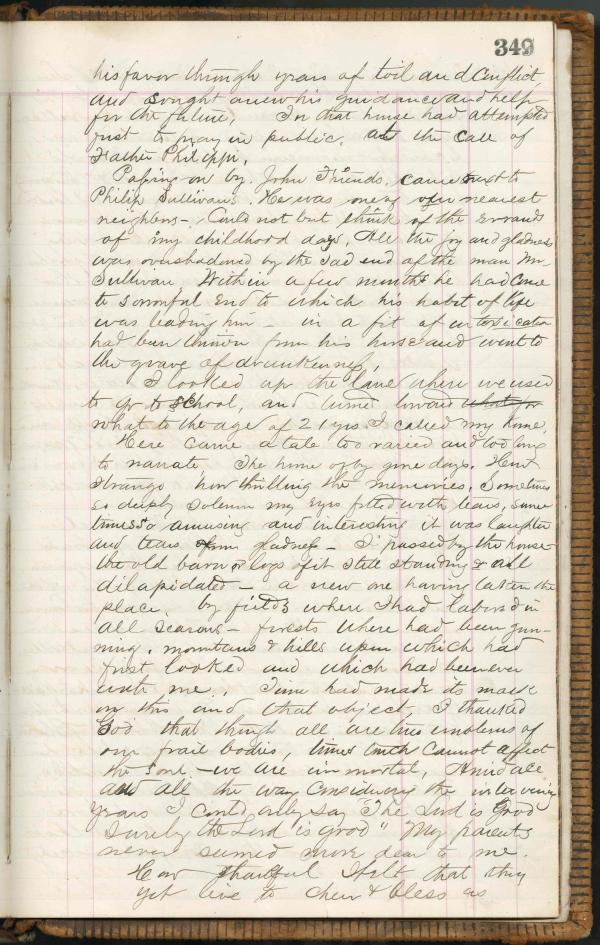 349
his favor through years of toil and Conflict,
and sought anew his guidance and help
for the future, In that house had attempted
first to pray in public. at the Call of
Father Philippi.
Passing on by John Friends. came next to
Philip Sullivans. He was one of our nearest
neighbors - Could not but think of the errands
of my childhood days, All the joy and gladness
was overshadowed by the sad end of the man Mr
Sullivan, Within a few months he had come
to sorrowful End to which his habit of life
was leading him - in a fit of intoxication
had been thrown from his horse and went to
the grave of drunkenness,
I looked up the lane where we used
to go to school, and turned toward what for
what to the age of 21 yrs I called my home,
Here came a tale too varied and too long
to narrate, The home of by gone days. How
strange how thrilling the memories. Sometimes
so deeply solemn my Eyes filled with tears, some
times so amusing and interesting it was laughter
and tears from gladness - I passed by the house -
the old barn or logs of it still standing & all
dilapidated - a new one having taken the
place, by fields where I had labored in
all seasons - forests where had been gun-
ning, mountains & hills upon which had
first looked and which had been ever
with me.. Time had made its mark
on this and that object, I thanked
God that though all are true emblems of
our frail bodies, times touch Cannot affect
the soul - we are immortal, Amid all
and all the way Considering the intervening
years I could only say "The Lord is Good
Surely the Lord is good" My parents
never seemed more dear to me.
How thankful I felt that they
yet live to cheer & bless us